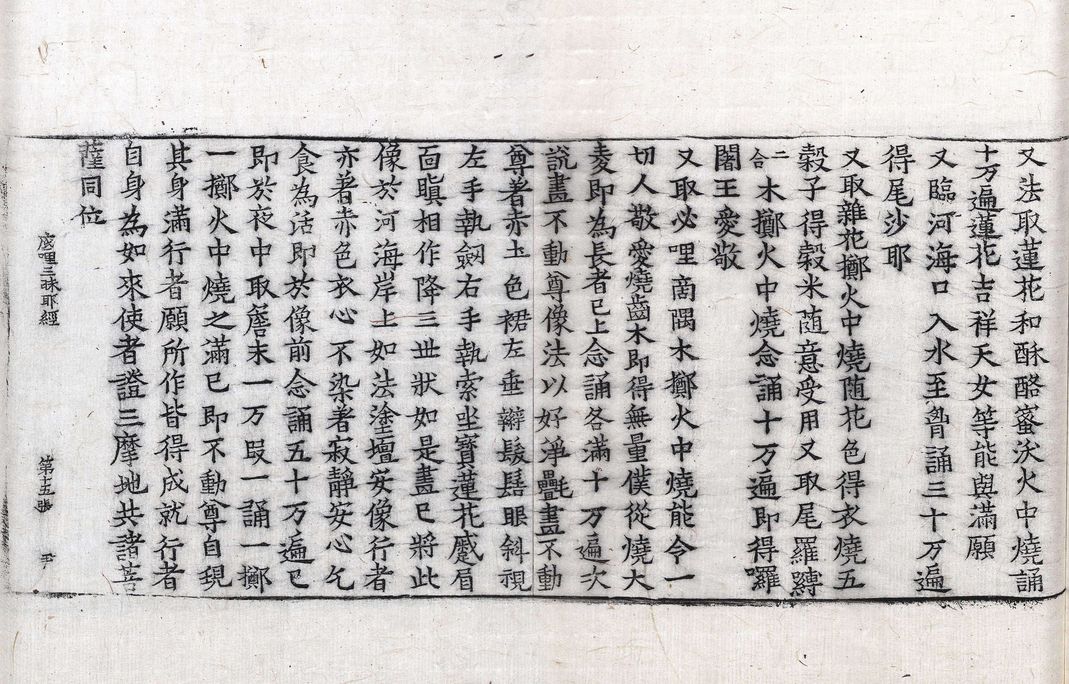 又法取蓮花和酥酪蜜沃火中燒誦
十万遍蓮花吉祥天女等能與滿願
又臨河海口入水至胷誦三十万遍
得尾沙耶
又取雜花擲火中燒随花色得衣燒五
穀子得穀米随意受用又取尾羅縛
二合木擲火中燒念誦十万遍即得囉
闍王愛敬
又取必哩啇隅木擲火中燒能令一
切人敬愛燒齒木即得無量僕從燒大
麦即為長者已上念誦各滿十万遍次
說畫不動尊像法以好淨㲲畫不動
尊著赤土色裙左垂辮髮髻眼斜視
左手執劒右手執索坐寶蓮花蹙眉
面瞋相作降三世狀如是畫已將此
像於河海岸上如法塗壇安像行者
亦著赤色衣心不染著寂靜安心乞
食為活即於像前念誦五十万遍已
即於夜中取𦼮末一万段一誦一擲
一擲火中燒之滿已即不動尊自現
其身滿行者願所作皆得成就行者
自身為如來使者證三摩地共諸菩
薩同位
底哩三昧耶經 第十五張 尹